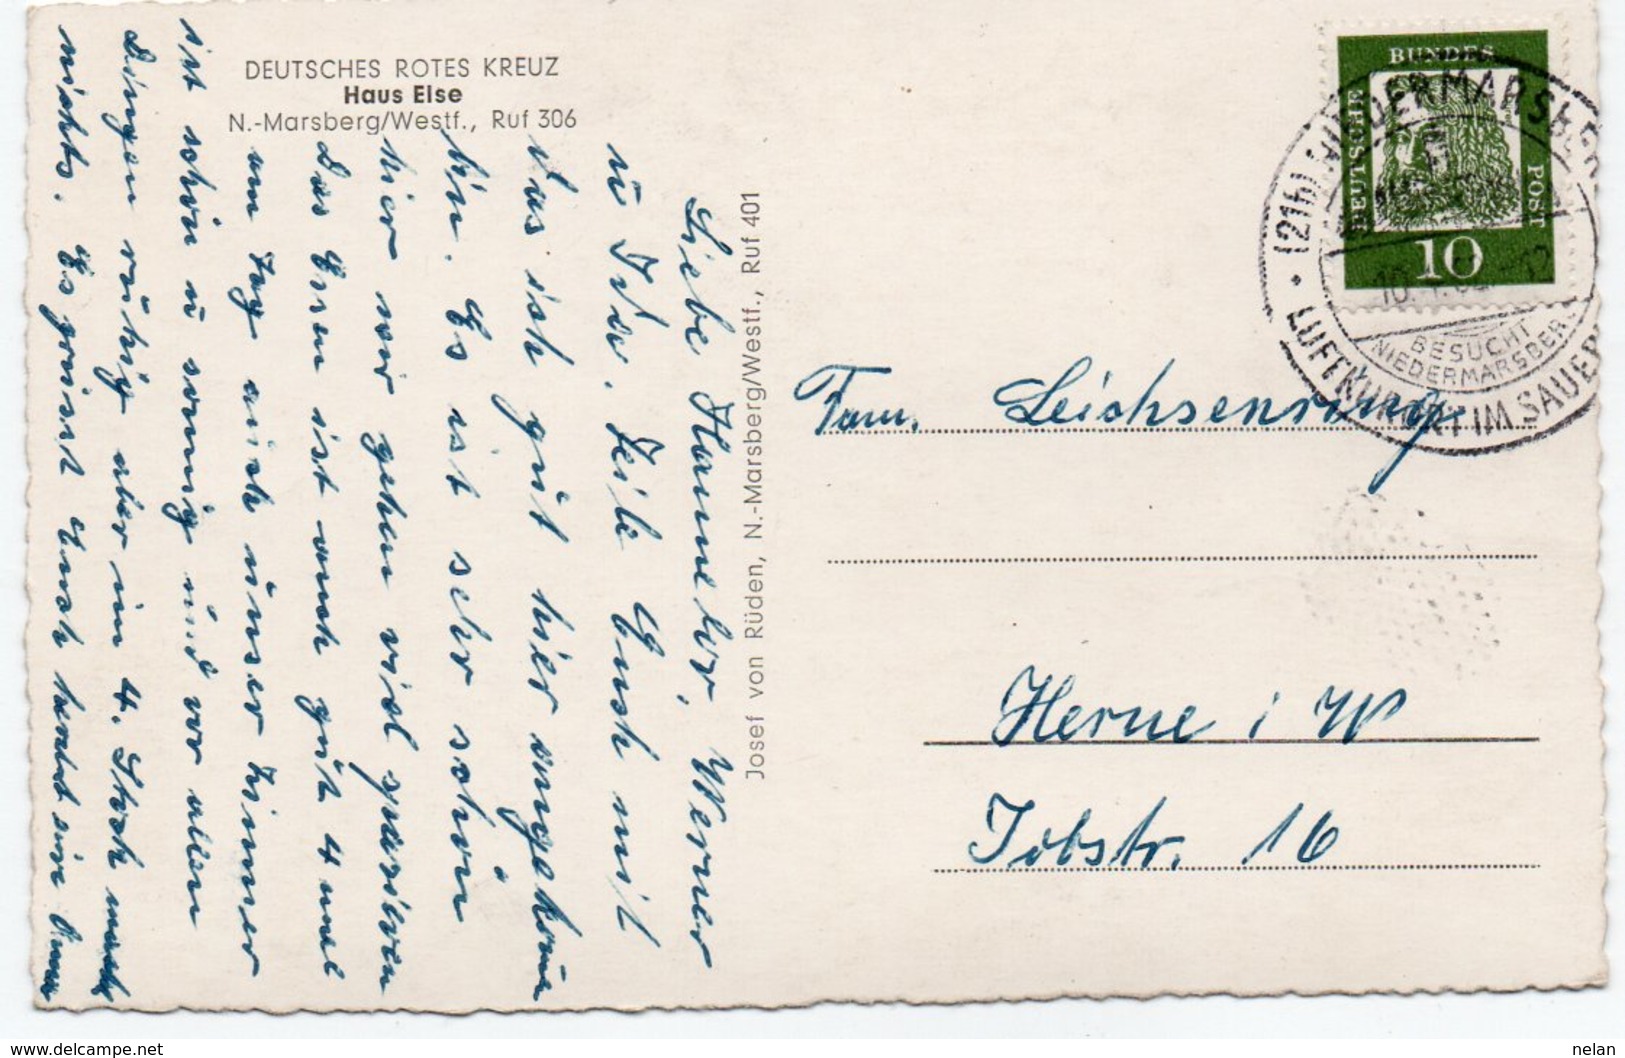 DEUTSCHES ROTES KREUZ
Haus Else
N.-Marsberg/Westf., Ruf 306
Liebe Hannelor, Werner
u Ida. Teile Euch mit
das ich gut hier angekom
bin. Es ist sehr schön
hier wir gehen viel spazieren
das Essen ist auch gut 4 mal
am Tag auch unser Zimmer
ist schön u sonnig und vor allen
Dingen ruhig aber im 4. Stock macht
nichts. Es grüsst Euch herzlich
Josef von Rüden, N.-Marsberg/Westf., Ruf 401
BUNDES
DEUTSCHE
POST
10
(21b) NIEDERMARSBERG
BESUCHT
NIEDERMARSBERG
LUFTKURORT IM SAUER
Fam. Leichsenring
Herne i W
Jobstr. 16
www.delcampe.net
nelan